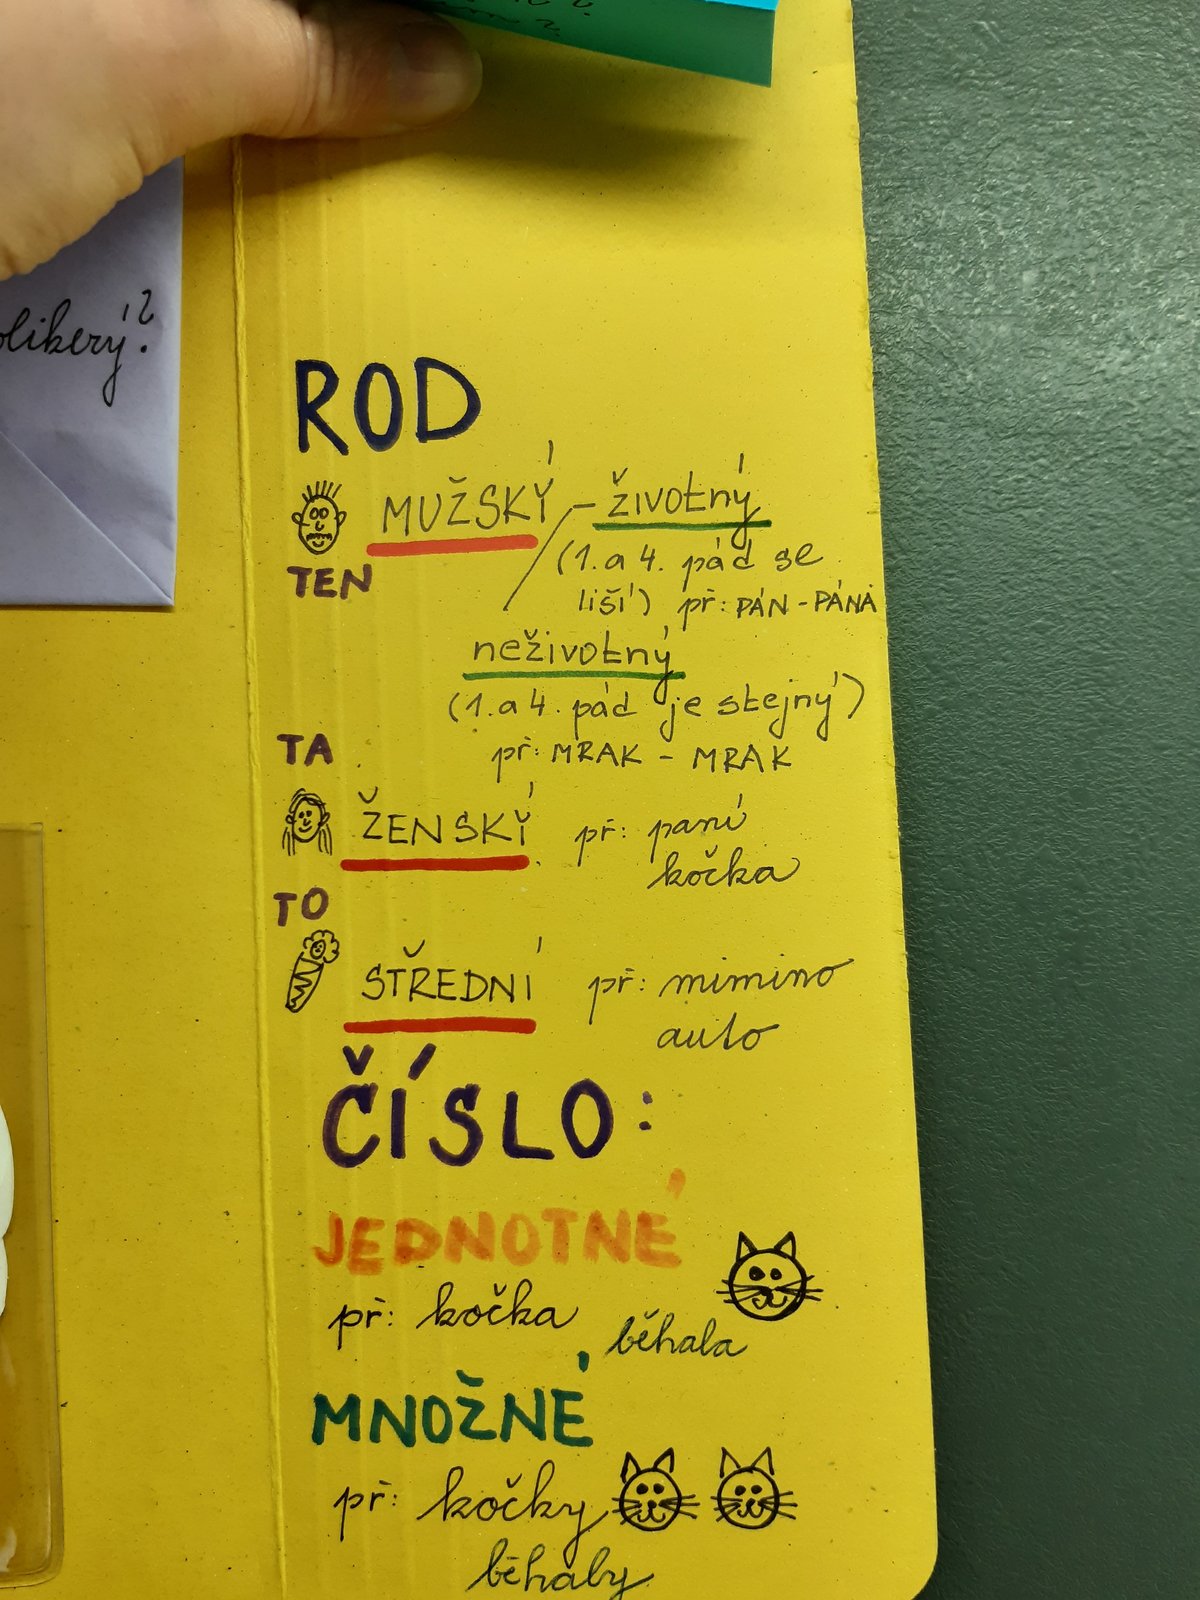 ROD
MUŽSKÝ - životný
TEN
(1. a 4. pád se
liší) př: PÁN - PÁNA
neživotný
(1. a 4. pád je stejný)
př: MRAK - MRAK
TA
ŽENSKÝ př: paní
kočka
TO
STŘEDNÍ př: mimino
auto
ČÍSLO:
JEDNOTNÉ
př: kočka běhala
MNOŽNÉ
př: kočky
běhaly